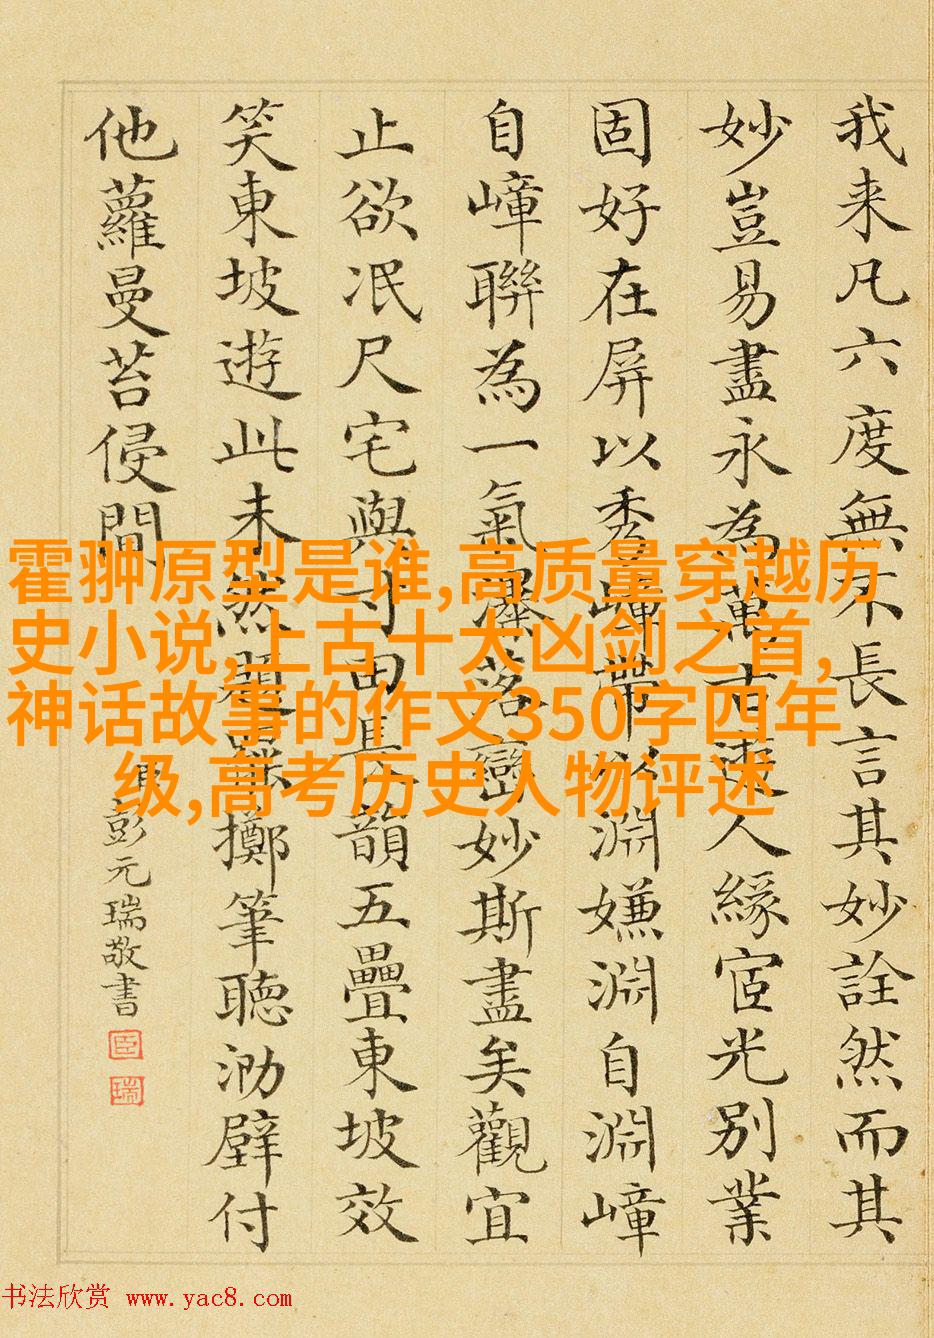 我来凡六度無不長言其妙詮然而其
妙豈易盡永為萬古人緣宦光別業
固好在屏以秀嶂帶以淵嫌淵自淵嶂
自嶂聯為一氣落巒妙斯盡矣觀宜
止欲泯尺宅與寸田長韻五疊東坡效
笑東坡遊此未然題罷擲筆聽泐壁付
他蘿曼苔侵間
臣彭元瑞敬書
臣
瑞
霍翀原型是谁,高质量穿越历
史小说,上古十大凶剑之首,
神话故事的作文350字四年
级,高考历史人物评述
书法欣赏 www.yac8.com